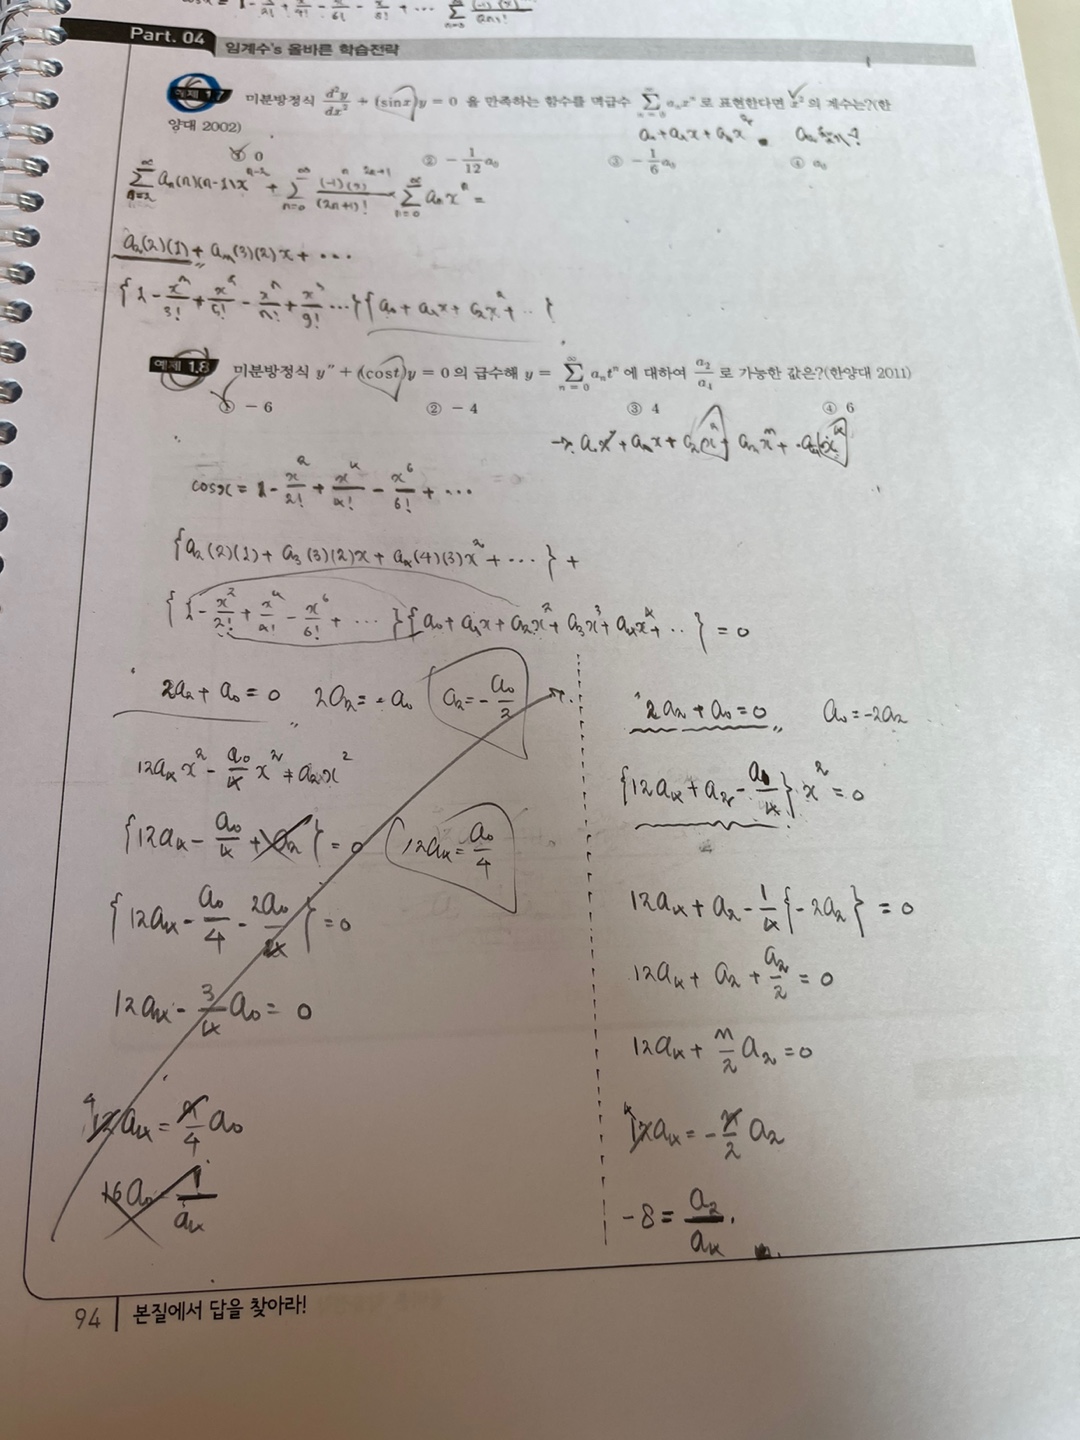 cosx = 1 - x²/2! + x⁴/4! - x⁶/6! - x/8! + ...
Part. 04 임계수's 올바른 학습전략
예제 1.7 미분방정식 d²y/dx² + (sinx)y = 0 을 만족하는 함수를 멱급수 ∑_{n=0}^{∞} aₙxⁿ 로 표현한다면 x² 의 계수는?(한
양대 2002)
a₀ + a₁x + a₂x²
① 0 ② -1/12 a₀ ③ -1/6 a₀ ④ a₀
∑_{n=2}^{∞} aₙ(n)(n-1)x^{n-2} + ∑_{n=0}^{∞} (-1)ⁿ(x)^{2n+1}/(2n+1)! × ∑_{n=0}^{∞} aₙxⁿ =
a₂(2)(1) + a₃(3)(2)x + ...
{a₀ + a₁x + a₂x² + ...}
예제 1.8 미분방정식 y″ + (cost)y = 0 의 급수해 y = ∑_{n=0}^{∞} aₙtⁿ 에 대하여 a₂/a₄ 로 가능한 값은?(한양대 2011)
① -6 ② -4 ③ 4 ④ 6
cosx = 1 - x²/2! + x⁴/4! - x⁶/6! + ...
{a₂(2)(1) + a₃(3)(2)x + a₄(4)(3)x² + ...} +
{1 - x²/2! + x⁴/4! - x⁶/6! + ...}{a₀ + a₁x + a₂x² + a₃x³ + a₄x⁴ + ..} = 0
2a₂ + a₀ = 0 2a₂ = -a₀ a₂ = -a₀/2
12a₄x² - a₀/4 x² + a₂x²
{12a₄ - a₀/4 + a₂} = 0 12a₄ = a₀/4
{12a₄ - a₀/4 - 2a₀/4} = 0
12a₄ - 3/4 a₀ = 0
12a₄ = 3/4 a₀
16a₀ 1/a₄
2a₂ + a₀ = 0 a₀ = -2a₂
{12a₄ + a₂ - a₀/4} x² = 0
12a₄ + a₂ - 1/4{-2a₂} = 0
12a₄ + a₂ + a₂/2 = 0
12a₄ + 3/2 a₂ = 0
12a₄ = -3/2 a₂
-8 = a₂/a₄
94 본질에서 답을 찾아라!